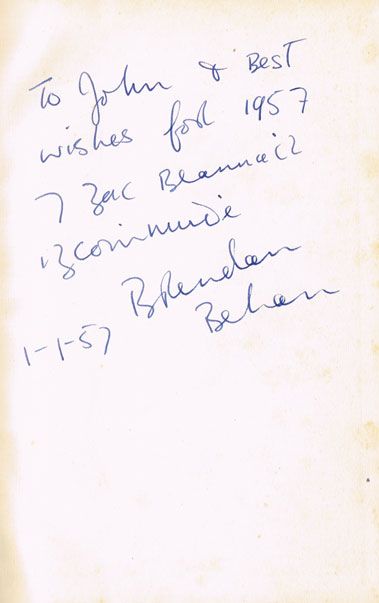 To John & Best
wishes for 1957
⁊ gaċ Beannaċt
i gcoṁnuiḋe
Brendan
Behan
1-1-57